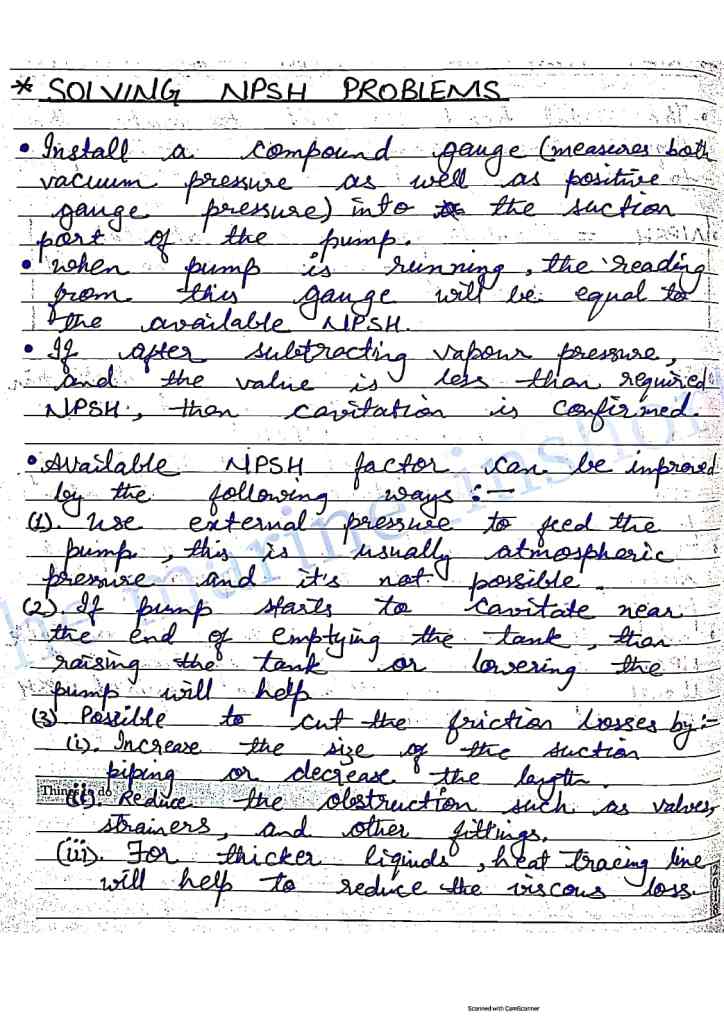 * SOLVING NPSH PROBLEMS
• Install a compound gauge (measures both
vacuum pressure as well as positive
gauge pressure) into the suction
port of the pump.
• When pump is running, the reading
from this gauge will be equal to
the available NPSH.
• If after subtracting vapour pressure,
and the value is less than required
NPSH, then cavitation is confirmed.
• Available NPSH factor can be improved
by the following ways :—
(1). Use external pressure to feed the
pump, this is usually atmospheric
pressure and it's not possible.
(2). If pump starts to cavitate near
the end of emptying the tank, than
raising the tank or lowering the
pump will help
(3) Possible to cut the friction losses by:-
(i). Increase the size of the suction
piping or decrease the length.
Things to do
(ii). Reduce the obstruction such as valves,
strainers, and other fittings.
(iii). For thicker liquids, heat tracing line
will help to reduce the viscous loss.
2018
marine_inshor
Scanned with CamScanner